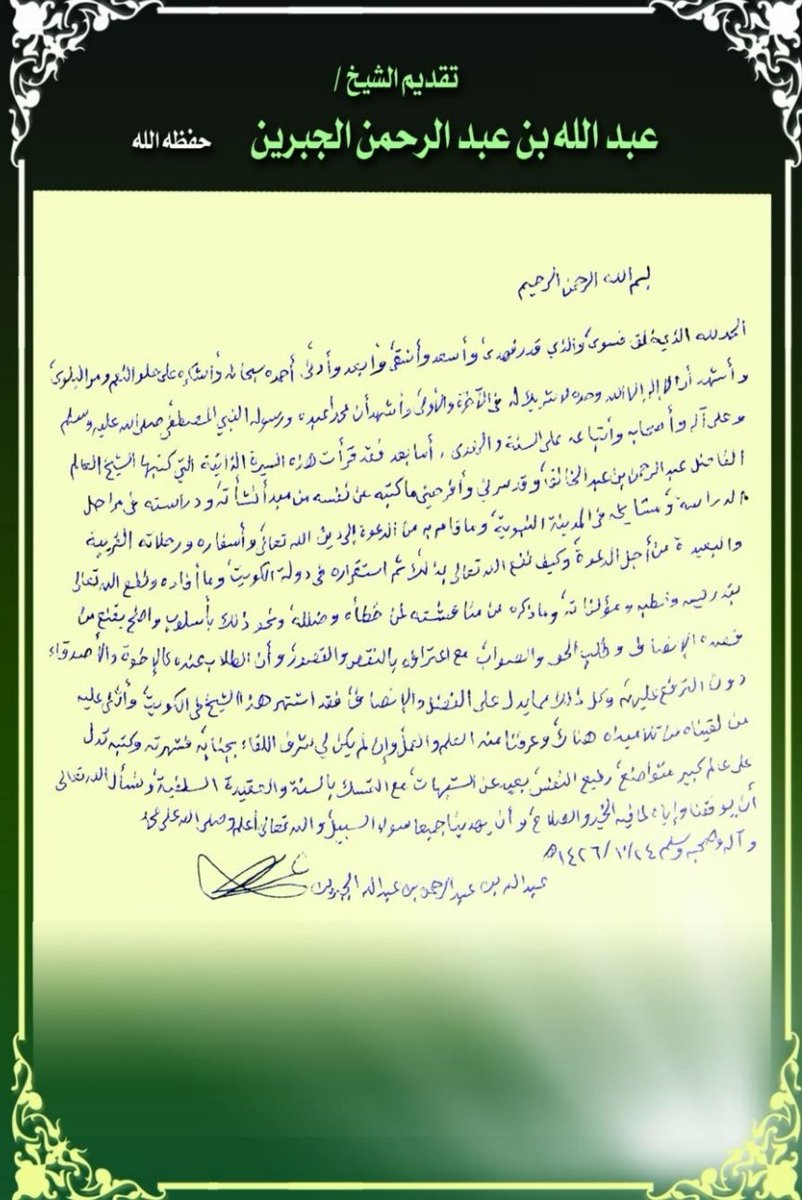 تقديم الشيخ /
عبد الله بن عبد الرحمن الجبرين حفظه الله
بسم الله الرحمن الرحيم
الحمد لله الذي خلق فسوى والذي قدر فهدى وأسعد وأشقى وأبعد وأدنى، أحمده سبحانه وأشكره على حلو النعم ومر البلوى
وأشهد أن لا إله إلا الله وحده لا شريك له في الآخرة والأولى وأشهد أن محمدا عبده ورسوله النبي المصطفى صلى الله عليه وسلم
وعلى آله وأصحابه وأتباعه على السنة والهدى، أما بعد فقد قرأت هذه السيرة الذاتية التي كتبها الشيخ العالم
الفاضل عبد الرحمن بن عبد الخالق وقد سرني وأفرحني ما كتبه عن نفسه من مبدأ نشأته ودراسته في مراحل
الدراسة ومشايخه في المدينة النبوية وما قام به من الدعوة إلى دين الله تعالى وأسفاره ورحلاته القريبة
والبعيدة من أجل الدعوة وكيف نفع الله تعالى به ثم استقراره في دولة الكويت وما أفاده ونفع الله تعالى
بتدريسه وخطبه ومؤلفاته وما ذكره من مناقشته لمن خطأه وضلله ونحو ذلك بأسلوب واضح يقنع من
قصده الإنصاف وطلب الحق والصواب مع اعترافه بالنقص والقصور وأن الطلاب عنده كالإخوة والأصدقاء
دون الترفع عليهم وكل ذلك مما يدل على الفضل والإنصاف فقد اشتهر هذا الشيخ في الكويت وأثنى عليه
من لقيناه من تلاميذه هناك وعرفنا منه العلم والعمل وإن لم يكن لي شرف اللقاء بجنابه فشهرته وكتبه تدل
على عالم كبير متواضع رفيع النفس بعيد عن الشبهات مع التمسك بالسنة والعقيدة السلفية ونسأل الله تعالى
أن يوفقنا وإياه لما فيه الخير والصلاح وأن يهدينا جميعا سواء السبيل والله تعالى أعلم وصلى الله على محمد
وآله وصحبه وسلم ٢٤/١٠/١٤٢٦هـ
عبد الله بن عبد الرحمن بن عبد الله الجبرين